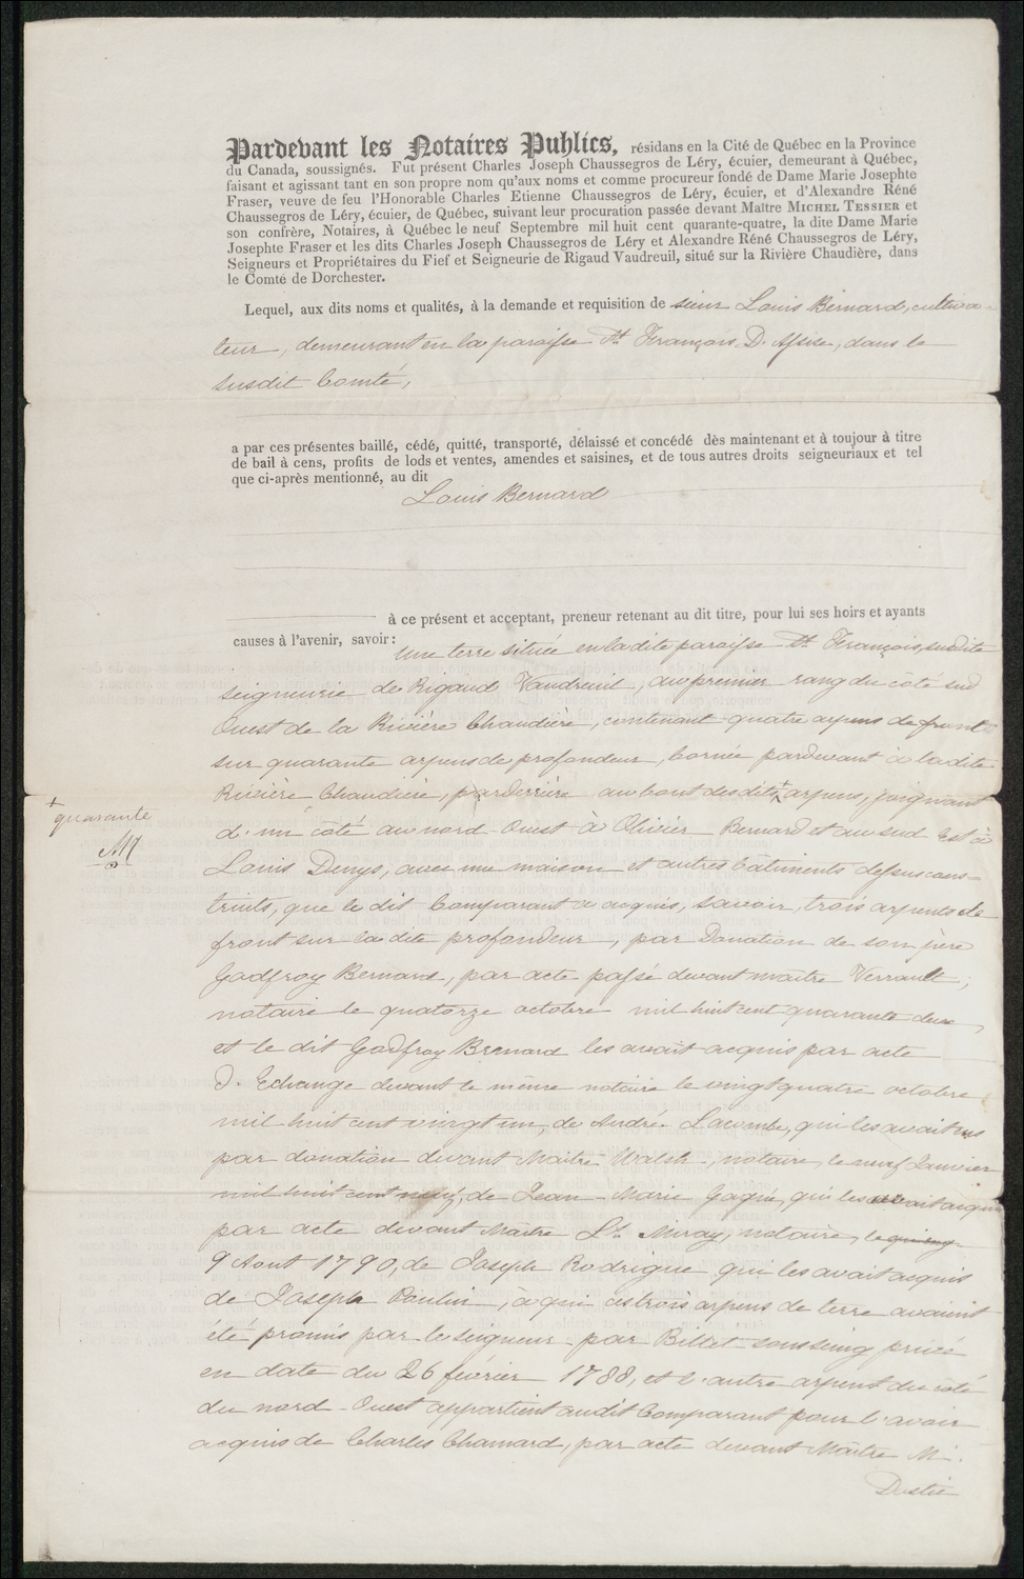 Pardevant les Notaires Publics, résidans en la Cité de Québec en la Province
du Canada, soussignés. Fut présent Charles Joseph Chaussegros de Léry, écuier, demeurant à Québec,
faisant et agissant tant en son propre nom qu'aux noms et comme procureur fondé de Dame Marie Josephte
Fraser, veuve de feu l'Honorable Charles Etienne Chaussegros de Léry, écuier, et d'Alexandre Réné
Chaussegros de Léry, écuier, de Québec, suivant leur procuration passée devant Maître MICHEL TESSIER et
son confrère, Notaires, à Québec le neuf Septembre mil huit cent quarante-quatre, la dite Dame Marie
Josephte Fraser et les dits Charles Joseph Chaussegros de Léry et Alexandre Réné Chaussegros de Léry,
Seigneurs et Propriétaires du Fief et Seigneurie de Rigaud Vaudreuil, situé sur la Rivière Chaudière, dans
le Comté de Dorchester.
Lequel, aux dits noms et qualités, à la demande et requisition de sieur Louis Bernard, cultiva-
teur, demeurant en la paroisse St. François D. Assise, dans le
susdit Comté,
a par ces présentes baillé, cédé, quitté, transporté, délaissé et concédé dès maintenant et à toujour à titre
de bail à cens, profits de lods et ventes, amendes et saisines, et de tous autres droits seigneuriaux et tel
que ci-après mentionné, au dit
Louis Bernard
à ce présent et acceptant, preneur retenant au dit titre, pour lui ses hoirs et ayants
causes à l'avenir, savoir: Une terre située en la dite paroisse St. François, susdite
seigneurie de Rigaud Vaudreuil, au premier rang du côté sud
Ouest de la Rivière Chaudière, contenant quatre arpens de front
sur quarante arpens de profondeur, bornée pardevant à la dite
Rivière Chaudière, parderrière au bout des dits + arpens, joignant
+
quarante
d'un côté au nord Ouest à Olivier Bernard et au sud Est à
Louis Denys, avec une maison et autres bâtiments dessus cons-
truits, que le dit Comparant a acquis, savoir, trois arpents de
front sur la dite profondeur, par Donation de son père
Godfroy Bernard, par acte passé devant maître Verrault,
notaire le quatorze octobre mil huit cent quarante deux,
et le dit Godfroy Bernard les avait acquis par acte
d'Echange devant le même notaire le vingt quatre octobre
mil huit cent vingt un, de André Lacombe, qui les avait eus
par donation devant Maître Walsh, notaire, le neuf Janvier
mil huit cent neuf, de Jean-Marie Gagné, qui les avait acquis
par acte devant Maître Ls. Miray, notaire, le
9 Aout 1790, de Joseph Rodrigue qui les avait acquis
de Joseph Poulin, à qui ces trois arpens de terre avaient
été promis par le seigneur par Billet sous seing privé
en date du 26 février 1788, et l'autre arpent du côté
du nord-Ouest appartient au dit Comparant pour l'avoir
acquis de Charles Chamard, par acte devant Maître M.